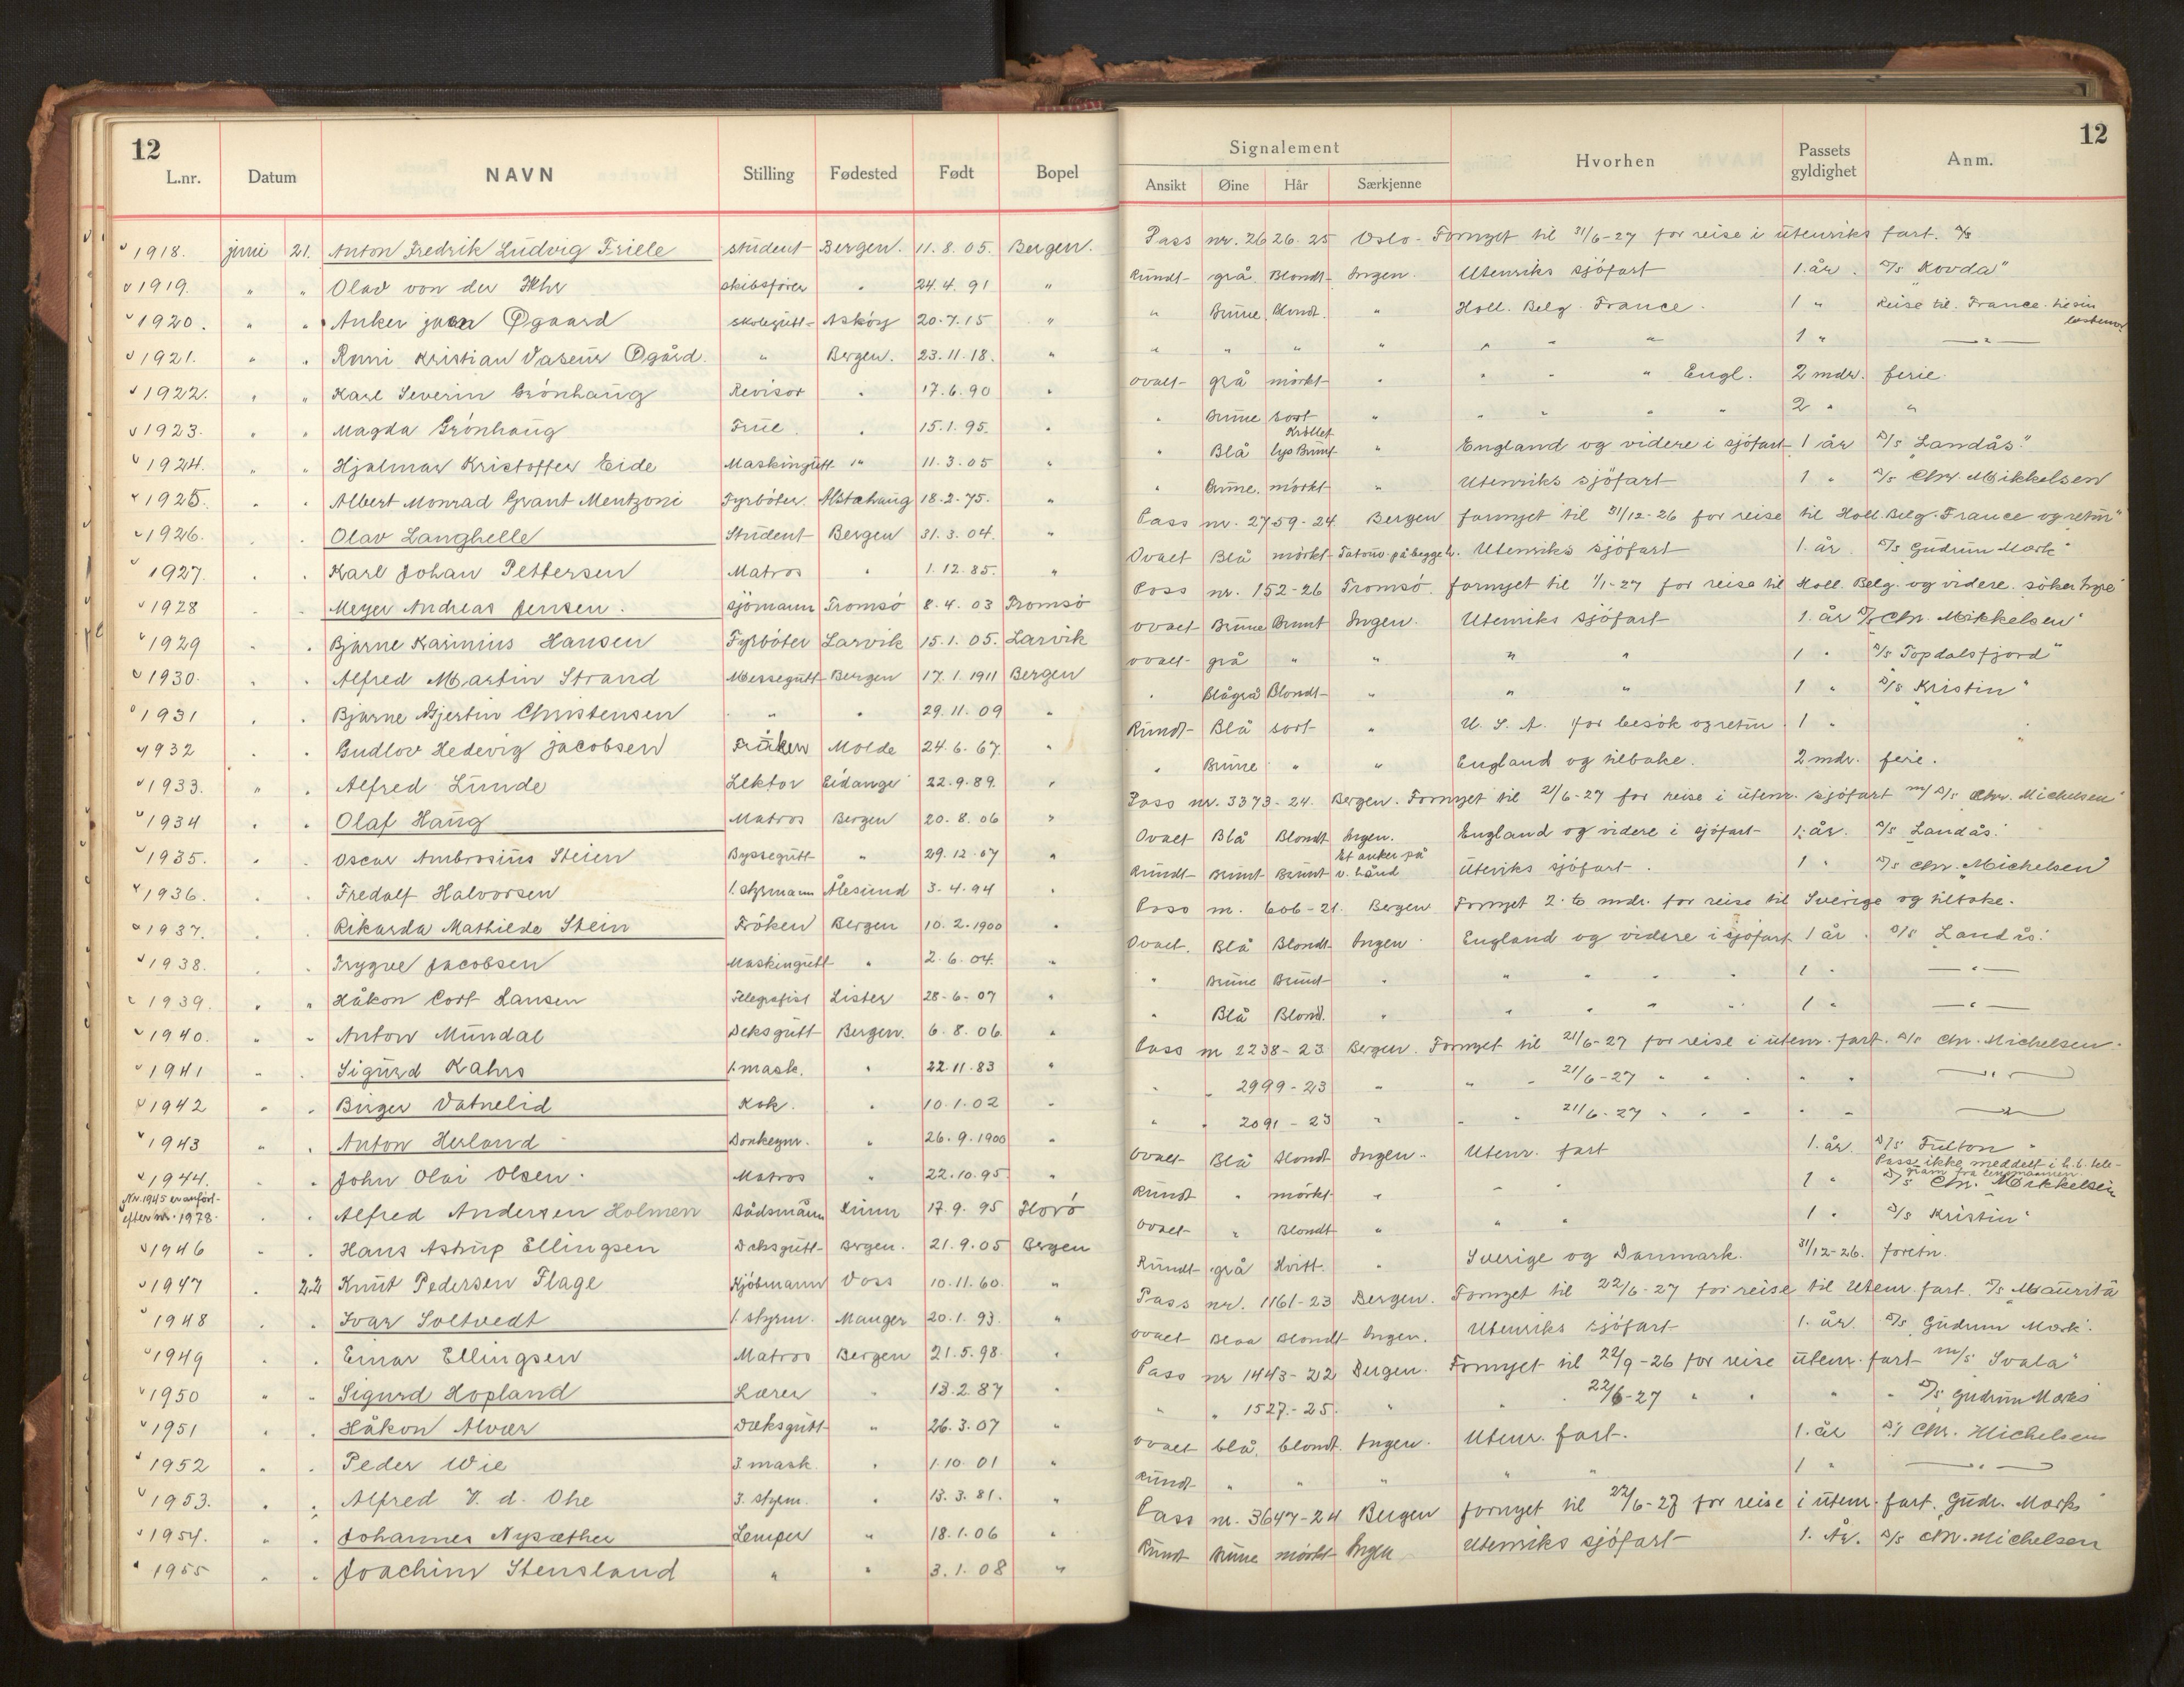 12
L.nr. Datum NAVN Stilling Fødested Født Bopel
1918. juni 21. Anton Fredrik Ludvig Friele student Bergen. 11.8.05. Bergen.
1919. " " Olav von der skibsfører " 24.4.91 "
1920. " " Anker Øgaard skolegutt Askøy 20.7.15 "
1921. " " Kristian Øgård. " Bergen. 23.11.18. "
1922. " " Karl Severin Grönhaug Revisor " 17.6.90 "
1923. " " Magda Grönhaug Frue. " 15.1.95. "
1924. " " Hjalmar Kristoffer Eide Maskingutt " 11.3.05 "
1925. " " Albert Monrad Grant Mentzoni Fyrböter. Alstahaug 18.2.75. "
1926. " " Olav Langhelle Student Bergen 31.3.04. "
1927. " " Karl Johan Pettersen Matros " 1.12.85. "
1928 " " Meyer Andreas Jensen. sjömann Tromsö 8.4.03 Tromsö
1929 " " Bjarne Kasinius Hansen Fyrböter Larvik 15.1.05. Larvik
1930. " " Alfred Martin Strand Messegutt Bergen 17.1.1911 Bergen
1931 " " Bjarne Gjertin Christensen " " 29.11.09 "
1932 " " Gudlov Hedevig Jacobsen Frøken Molde 24.6.67. "
1933. " " Alfred Lunde Lektor Eidanger 22.9.89. "
1934 " " Olaf Haug Matros Bergen 20.8.06 "
1935. " " Oscar Ambrosius Steien Byssegutt " 29.12.07 "
1936. " " Fredolf Halvorsen 1. styrmann Ålesund 3.4.94 "
1937. " " Rikarda Mathilde Stein Fröken Bergen 10.2.1900 "
1938. " " Trygve Jacobsen Maskingutt " 2.6.04. "
1939. " " Håkon Cort Hansen Telegrafist Lister 28-6-07 "
1940. " " Anton Mundal Deksgutt Bergen. 6.8.06. "
1941 " " Sigurd Kahrs 1. mask. " 22.11.83 "
1942 " " Birger Vatnelid Kok. " 10.1.02 "
1943 " " Anton Herland Donkeym. " 26.9.1900 "
1944. " " John Olai Olsen. Matros " 22.10.95. "
Nr. 1945 er anført efter nr. 1978. " " Alfred Andersen Holmen Bådsmann Kinn 17.9.95 Horö
1946 " " Hans Astrup Ellingsen Deksgutt Bergen. 21.9.05 Bergen
1947 " 22 Knut Pedersen Flage Kjöbmann Voss 10.11.60. "
1948 " " Ivar Soltvedt 1. styrm. Manger 20.1.93. "
1949 " " Einar Ellingsen Matros Bergen 21.5.98. "
1950 " " Sigurd Hopland Lærer " 13.2.87 "
1951 " " Håkon Alvær Dæksgutt " 26.3.07 "
1952 " " Peder Wie 3. mask. " 1.10.01 "
1953. " " Alfred V. d. Ohe 3. styrm. " 13.3.81. "
1954. " " Johannes Nysæther Lemper " 18.1.06 "
1955 " " Joachim Stensland " " 3.1.08 "
12
Signalement
Ansikt Øine Hår Særkjenne Hvorhen Passets gyldighet Anm.
Pass nr. 2626-25 Oslo - Fornyet til 21/6-27 for reise i utenriks fart.
Rundt grå. Blondt Ingen. Utenriks sjöfart 1. år. D/s "Kovda"
" Brune Blondt. " Holl. Belg. France. 1 " Reise til France til sin
" " " " " " " 1 " "
ovalt grå mörkt " " " " Engl. 2 mdr. ferie.
" Brune sort " " " " " 2 " "
" Blå Krøllet lys Brunt " England og videre i sjöfart 1 år D/s "Landås"
" Brune. mörkt " Utenriks sjöfart 1 " D/s Chr. Mikkelsen
Pass nr. 2759-24 Bergen fornyet til 31/12-26 for reise til Holl. Belg. France og retur
Ovalt Blå mörkt Tatouv. på begge h. Utenriks sjöfart 1. år. D/s Gudrun Mærk
Pass nr. 152-26 Tromsö. fornyet til 1/1-27 for reise til Holl. Belg. og videre. söker hyre
ovalt Brune Brunt Ingen. Utenriks sjöfart 1. år D/s Chr. Mikkelsen
ovalt grå " " " " 1 " D/s Topdalsfjord"
" Blågrå Blondt " " " 1 " D/s Kristin"
Rundt Blå sort " U.S.A. for besök og retur 1 " "
" Brune " " England og tilbake. 2 mdr. ferie.
Pass nr. 3373-24. Bergen. Fornyet til 21/6-27 for reise i utenr. sjöfart m/ D/s Chr. Michelsen
Ovalt Blå Blondt Ingen. England og videre i sjöfart 1. år. D/s Landås.
Rundt Brunt Brunt Et anker på v. hånd Utenriks sjöfart. 1 " D/s Chr. Michelsen
Pass nr. 606-21 Bergen Fornyet 2 to mdr. for reise til Sverige og tilbake.
Ovalt. Blå Blondt Ingen England og videre i sjöfart 1 år. D/s Landås.
" Brune Brunt " " " " " 1 " "
" Blå Blond. " " " " " 1 " "
Pass nr 2238-23 Bergen. Fornyet til 21/6-27 for reise i utenr. fart. D/s Chr. Michelsen.
" " 2999-23 " " " 21/6-27 " " " " " "
" " 2091-23 " " " 21/6-27 " " " " " "
ovalt Blå Blondt Ingen. Utenr. fart 1. år. D/s Fulton "
Pass ikke meddelt i h. t. telegram fra lensmannen.
Rundt " mörkt " " " 1 " D/s Chr. Mikkelsen
ovalt " Blondt " " " 1 " D/s Kristin"
Rundt grå Hvitt. " Sverige og Danmark. 31/12-26. foretn.
Pass nr. 1161-23 Bergen. Fornyet til 22/6-27 for reise til Utenr. fart. D/s Maurita
ovalt Blaa Blondt Ingen. Utenriks sjöfart 1. år. D/s Gudrun Mærk.
Pass nr 1443-22 Bergen. Fornyet til 22/9-26 for reise utenr. fart m/s Svala"
" " 1527-25. " " " 22/6-27 " " " " D/s Gudrun Mærks
ovalt blå. blondt. Ingen. Utenr. fart. 1. år D/s Chr. Michelsen
Rundt " " " " " 1 " "
Pass nr. 3647-24 Bergen fornyet til 22/6-27 for reise i utenr. fart. Gudr. Mærks
Rundt Brune mörkt Ingen Utenriks sjöfart 1. År. D/s Chr. Michelsen